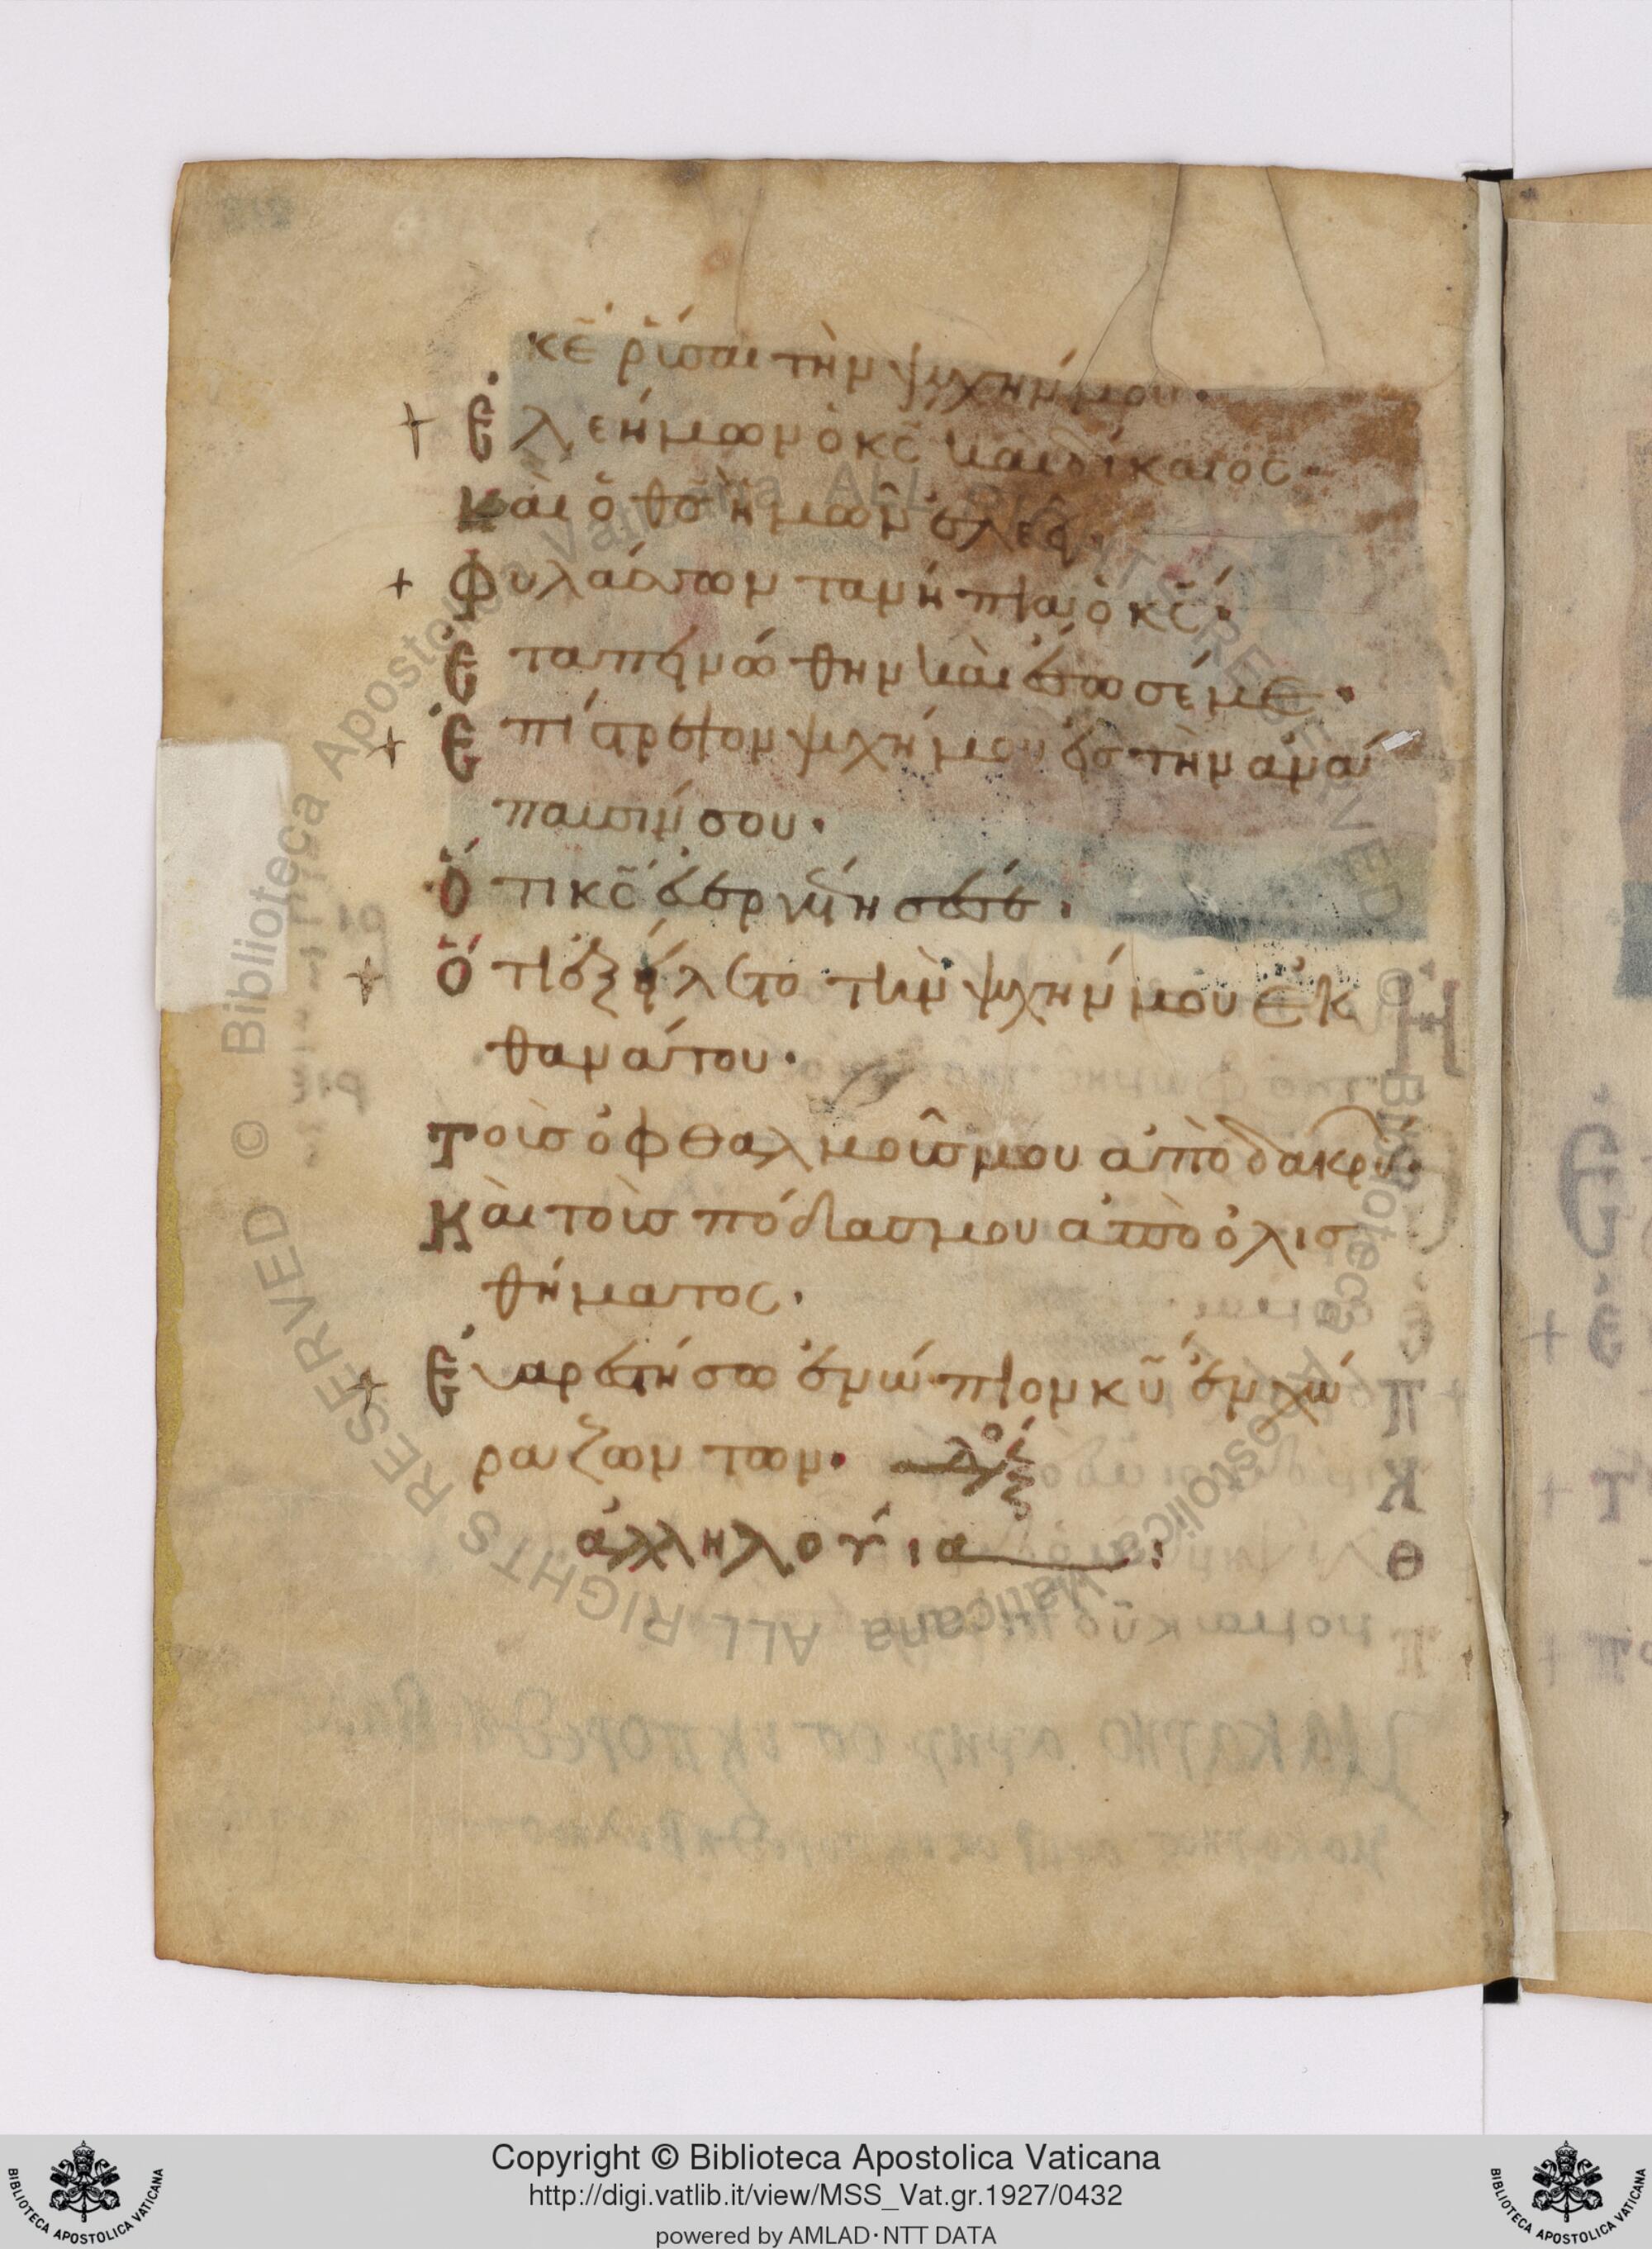 κε̅ ῥύσαι τὴν ψυχήν μου·
+ Ἐλεήμων ὁ κσ̅ καὶ δίκαιος·
Καὶ ὁ θσ̅ ἡμῶν ἐλεεῖ·
+ Φυλάσσων τὰ νήπια ὁ κσ̅·
Ἐταπεινώθην καὶ ἔσωσέ με·
+ Ἐπίστρεψον ψυχή μου εἰς τὴν ἀνά
παυσίν σου·
Ὅτι κσ̅ εὐεργέτησέ σε·
+ Ὅτι ἐξείλετο τὴν ψυχήν μου ἐκ
θανάτου·
Τοὺσ ὀφθαλμούσ μου ἀπὸ δακρύ·
Καὶ τοὺσ πόδασ μου ἀπὸ ὀλισ
θήματος·
+ Εὐαρεστήσω ἐνώπιον κυ̅ ἐν χώ
ρα ζώντων·
ἀλληλούια :
Copyright © Biblioteca Apostolica Vaticana
http://digi.vatlib.it/view/MSS_Vat.gr.1927/0432
powered by AMLAD·NTT DATA
BIBLIOTECA APOSTOLICA VATICANA
BIBLIOTECA APOSTOLICA VATICANA
© Biblioteca Apostolica Vaticana ALL RIGHTS RESERVED
© Biblioteca Apostolica Vaticana ALL RIGHTS RESERVED